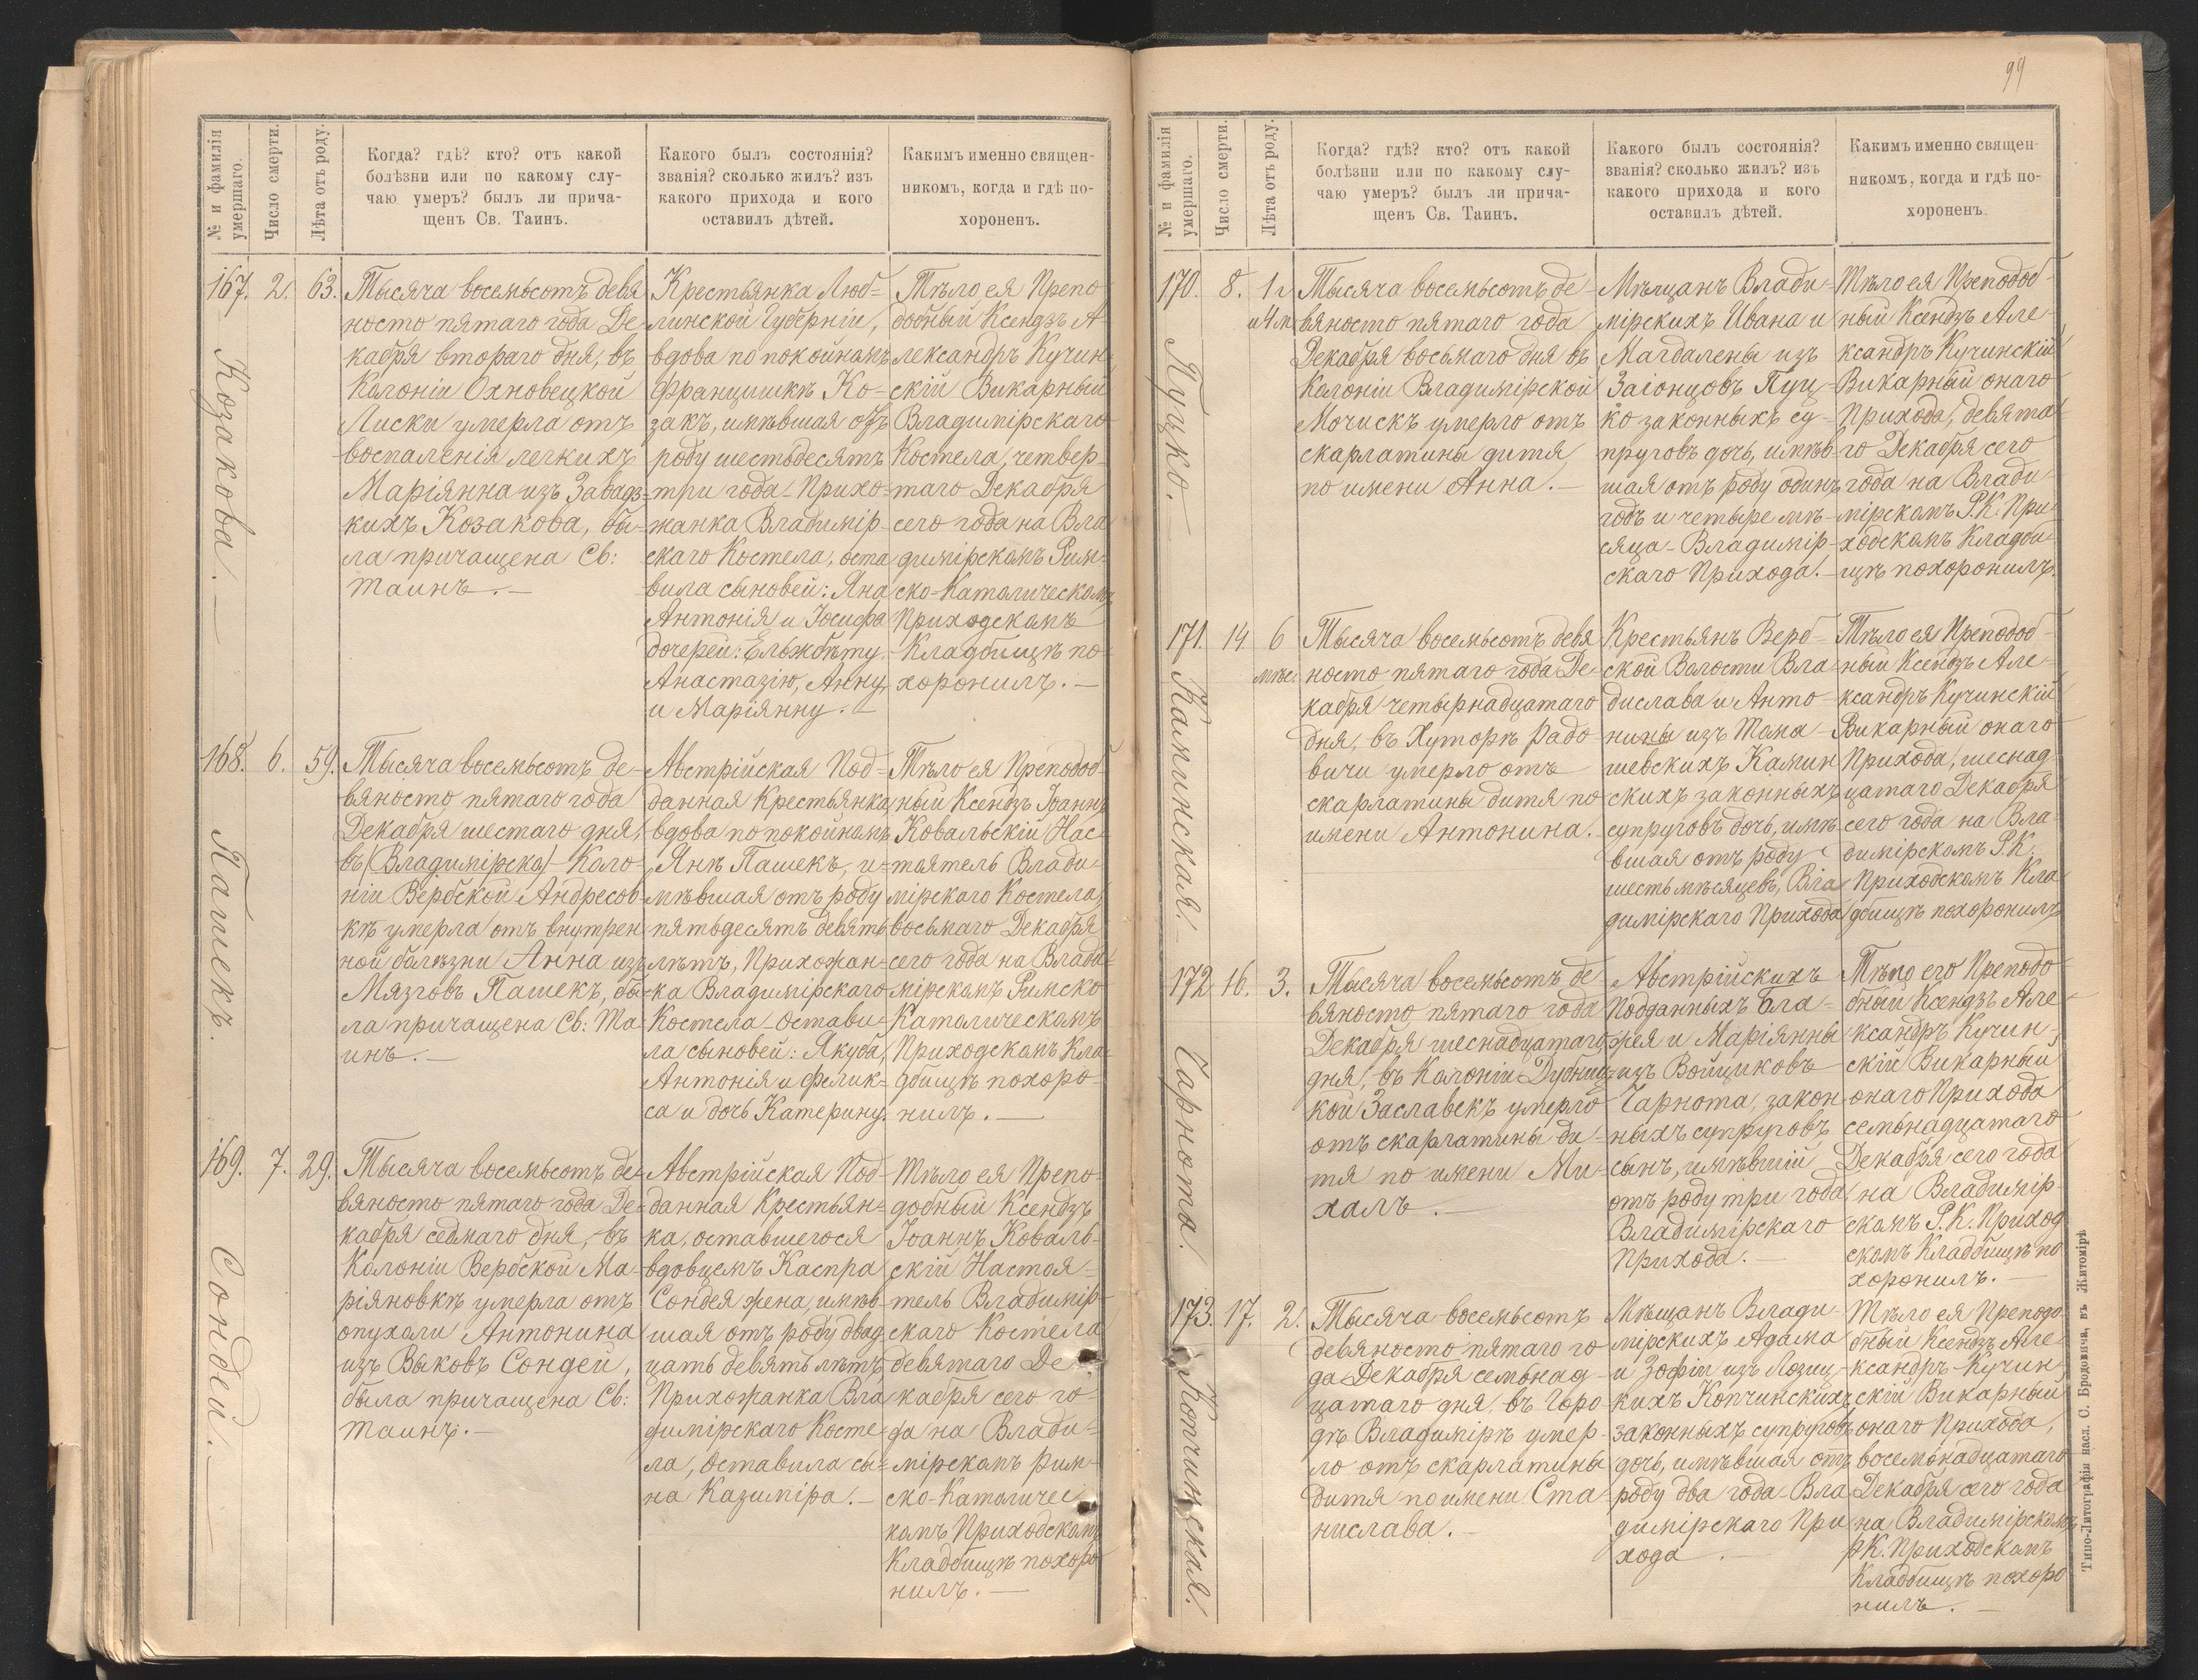 99
№ и фамилія умершаго.
Число смерти.
Лѣта отъ роду.
Когда? гдѣ? кто? отъ какой
болѣзни или по какому слу-
чаю умеръ? былъ ли прича-
щенъ Св. Таинъ.
Какого былъ состоянія?
званія? сколько жилъ? изъ
какого прихода и кого
оставилъ дѣтей.
Какимъ именно священ-
никомъ, когда и гдѣ по-
хороненъ.
167. 2. 63.
Козакова.
Тысяча восемьсотъ девя
носто пятаго года Де-
кабря втораго дня, въ
Колоніи Охновецкой
Лиски умерла отъ
воспаленія легкихъ
Маріянна изъ Завадз-
кихъ Козакова, бы-
ла причащена Св:
Таинъ.—
Крестьянка Люб-
линской Губерніи,
вдова по покойномъ
Францишкѣ Ко-
закъ, имѣвшая отъ
роду шестьдесятъ
три года - Прихо-
жанка Владимір-
скаго Костела, оста
вила сыновей: Яна
Антонія и Іосифа
дочерей: Ельжбѣту
Анастазію, Анну
и Маріянну.—
Тѣло ея Препо
добный Ксендзъ А-
лександръ Кучин
скій Викарный
Владимірскаго
Костела, четвер-
таго Декабря
сего года на Вла
димірскомъ Рим-
ско-Католическомъ
Приходскомъ
Кладбищѣ по-
хоронилъ.—
168. 6. 59.
Пашекъ.
Тысяча восемьсотъ де-
вяносто пятаго года
Декабря шестаго дня,
въ (Владимірско) Коло-
ніи Вербской Андресов
кѣ умерла отъ внутрен
ной болѣзни Анна изъ
Мязговъ Пашекъ, бы-
ла причащена Св: Та
инъ.—
Австрійская Под-
данная Крестьянка,
вдова по покойномъ
Янѣ Пашекъ, и-
мѣвшая отъ роду
пятьдесятъ девять
лѣтъ, Прихожан-
ка Владимірскаго
Костела - Остави-
ла сыновей: Якуба,
Антонія и Фелик-
са и дочь Катерину.
Тѣло ея Преподоб
ный Ксендзъ Іоаннъ
Ковальскій Нас-
тоятель Влади-
мірскаго Костела,
восьмаго Декабря
сего года на Влади-
мірскомъ Римско
Католическомъ
Приходскомъ Кла-
дбищѣ похоро-
нилъ.—
169. 7. 29.
Сондей.
Тысяча восемьсотъ де-
вяносто пятаго года Де-
кабря седмаго дня, въ
Колоніи Вербской Ма-
ріяновкѣ умерла отъ
опухоли Антонина
изъ Выковъ Сондей,
была причащена Св:
Таинъ.—
Австрійская Под-
данная Крестьян-
ка, оставшегося
вдовцемъ Каспра
Сондея жена, имѣв
шая отъ роду двад
цать девять лѣтъ
Прихожанка Вла
димірскаго Косте
ла, Оставила сы-
на Казиміра.—
Тѣло ея Препо-
добный Ксендзъ
Іоаннъ Коваль-
скій Настоя-
тель Владимір-
скаго Костела
девятаго Де-
кабря сего го-
да на Влади-
мірскомъ Рим-
ско-Католичес
комъ Приходскомъ
Кладбищѣ похоро
нилъ.—
№ и фамилія умершаго.
Число смерти.
Лѣта отъ роду.
Когда? гдѣ? кто? отъ какой
болѣзни или по какому слу-
чаю умеръ? былъ ли прича-
щенъ Св. Таинъ.
Какого былъ состоянія?
званія? сколько жилъ? изъ
какого прихода и кого
оставилъ дѣтей.
Какимъ именно священ-
никомъ, когда и гдѣ по-
хороненъ.
170. 8. 1 г
и 4 м
Пуцко.
Тысяча восемьсотъ де-
вяносто пятаго года
Декабря восьмаго дня въ
Колоніи Владимірской
Мочискъ умерло отъ
скарлатины дитя
по имени Анна.—
Мѣщанъ Влади-
мірскихъ Ивана и
Магдалены изъ
Заіонцовъ Пуц-
ко законныхъ су-
пруговъ дочь, имѣв-
шая отъ роду одинъ
годъ и четыре мѣ-
сяца - Владимір-
скаго Прихода.—
Тѣло ея Преподоб-
ный Ксендзъ Але-
ксандръ Кучинскій
Викарный онаго
Прихода, девята-
го Декабря сего
года на Влади-
мірскомъ Р.К. При-
ходскомъ Кладби-
щѣ похоронилъ.
171. 14 6
мѣс.
Каминская.
Тысяча восемьсотъ девя
носто пятаго года Де-
кабря четырнадцатаго
дня, въ Хуторѣ Радо
вичи умерло отъ
скарлатины дитя по
имени Антонина.
Крестьянъ Верб-
ской Волости Вла-
дислава и Анто-
нины изъ Тома-
шевскихъ Камин
скихъ законныхъ
супруговъ дочь, имѣ-
вшая отъ роду
шесть мѣсяцевъ, Вла
димірскаго Прихода
Тѣло ея Преподоб-
ный Ксендзъ Але-
ксандръ Кучинскій
Викарный онаго
Прихода, шеснад
цатаго Декабря
сего года на Вла-
димірскомъ Р.К.
Приходскомъ Кла
дбищѣ похоронилъ
172 16. 3.
Чарнота.
Тысяча восемьсотъ де
вяносто пятаго года
Декабря шеснадцатаго
дня, въ Колоніи Дубниц-
кой Заславекъ умерло
отъ скарлатины ди-
тя по имени Ми-
халъ.—
Австрійскихъ
Подданныхъ Бла-
жея и Маріянны
изъ Войциковъ
Чарнота, закон
ныхъ супруговъ,
сынъ, имѣвшій
отъ роду три года
Владимірскаго
Прихода.—
Тѣло его Преподо
бный Ксендзъ Але
ксандръ Кучин-
скій Викарный
онаго Прихода
семьнадцатаго
Декабря сего года
на Владимір-
скомъ Р.К. Приход
скомъ Кладбищѣ по
хоронилъ.—
173. 17. 2.
Копчинская.
Тысяча восемьсотъ
девяносто пятаго го
да Декабря семьнад-
цатаго дня, въ Горо-
дѣ Владимірѣ умер-
ло отъ скарлатины
дитя по имени Ста
нислава.—
Мѣщанъ Влади-
мірскихъ Адама
и Зофіи изъ Лозиц-
кихъ Копчинскихъ
законныхъ супруговъ
дочь, имѣвшая отъ
роду два года - Вла
димірскаго При
хода.—
Тѣло ея Преподо-
бный Ксендзъ Але
ксандръ Кучин
скій Викарный
онаго Прихода,
восемьнадцатаго
Декабря сего года
на Владимірскомъ
Р.К. Приходскомъ
Кладбищѣ похоро
нилъ.—
Типо-Литографія насл. С. Бродовича, въ Житомірѣ